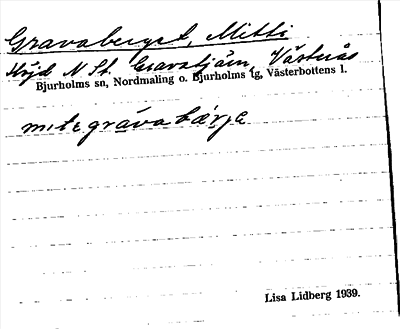 Gravaberget, Mitti
Höjd N St. Gravatjärn, Västerås
Bjurholms sn, Nordmaling o. Bjurholms tg, Västerbottens l.
mɩtɩgràvabærjɛ
Lisa Lidberg 1939.